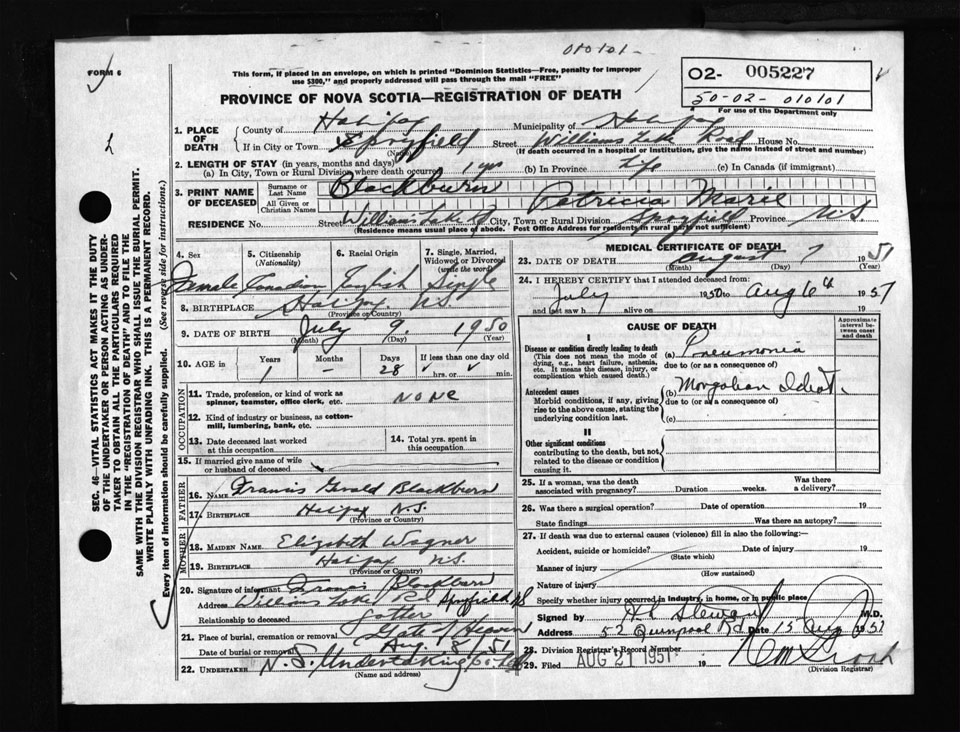 010101-
FORM 6
This form, if placed in an envelope, on which is printed "Dominion Statistics—Free, penalty for improper
use $300," and properly addressed will pass through the mail "FREE"
O2- 005227
50-02- 010101
For use of the Department only
PROVINCE OF NOVA SCOTIA—REGISTRATION OF DEATH
1. PLACE OF DEATH
County of Halifax Municipality of Halifax
If in City or Town Spryfield Street Williams Lake Road House No.
(If death occurred in a hospital or institution, give the name instead of street and number)
2. LENGTH OF STAY (in years, months and days)
(a) In City, Town or Rural Division where death occurred 1 yr (b) In Province Life (c) In Canada (if immigrant)
3. PRINT NAME OF DECEASED
Surname or Last Name Blackburn
All Given or Christian Names Patricia Marie
RESIDENCE No. Street Williams Lake Rd City, Town or Rural Division Spryfield Province N.S.
(Residence means usual place of abode. Post Office Address for residents in rural parts not sufficient)
4. Sex
5. Citizenship (Nationality)
6. Racial Origin
7. Single, Married, Widowed or Divorced (write the word)
Female Canadian English Single
8. BIRTHPLACE Halifax N.S.
(Province or Country)
9. DATE OF BIRTH July 9. 1950
(Month) (Day) (Year)
10. AGE in Years Months Days If less than one day
1 – 28 hrs. or min.
OCCUPATION
11. Trade, profession, or kind of work as spinner, teamster, office clerk, etc. None
12. Kind of industry or business, as cotton-mill, lumbering, bank, etc.
13. Date deceased last worked at this occupation
14. Total yrs. spent in this occupation
15. If married give name of wife or husband of deceased
FATHER
16. NAME Francis Gerald Blackburn
17. BIRTHPLACE Halifax N.S.
(Province or Country)
MOTHER
18. MAIDEN NAME Elizabeth Wagner
19. BIRTHPLACE Halifax N.S.
(Province or Country)
20. Signature of informant Francis Blackburn
Address Williams Lake Rd Spryfield NS
Relationship to deceased father
21. Place of burial, cremation or removal Gate of Heaven
Date of burial or removal Aug. 8/51
22. UNDERTAKER N.S. Undertaking Co. Ltd
(Name and address)
MEDICAL CERTIFICATE OF DEATH
23. DATE OF DEATH August 7 1951
(Month) (Day) (Year)
24. I HEREBY CERTIFY that I attended deceased from:
July 1950 to Aug 6th 1951
and last saw h alive on 19
CAUSE OF DEATH
Approximate interval between onset and death
I
Disease or condition directly leading to death
(This does not mean the mode of dying, e.g., heart failure, asthenia, etc. It means the disease, injury, or complication which caused death.)
(a) Pneumonia
due to (or as a consequence of)
Antecedent causes
Morbid conditions, if any, giving rise to the above cause, stating the underlying condition last.
(b) Mongolian Idiot
due to (or as a consequence of)
(c)
II
Other significant conditions
contributing to the death, but not related to the disease or condition causing it.
25. If a woman, was the death associated with pregnancy? Duration weeks. Was there a delivery?
26. Was there a surgical operation? Date of operation 19
State findings Was there an autopsy?
27. If death was due to external causes (violence) fill in also the following:
Accident, suicide or homicide? Date of injury 19
(State which)
Manner of injury
(How sustained)
Nature of injury
Specify whether injury occurred in industry, in home, or in public place
Signed by M.D.
Address 52 Quinpool Rd Date 15 Aug 1951
28. Division Registrar's Record Number
29. Filed AUG 21 1951 19
(Division Registrar)
SEC. 46—VITAL STATISTICS ACT MAKES IT THE DUTY
OF THE UNDERTAKER OR PERSON ACTING AS UNDER-
TAKER TO OBTAIN ALL THE PARTICULARS REQUIRED
IN THE "REGISTRATION OF DEATH" AND TO FILE THE
SAME WITH THE DIVISION REGISTRAR WHO SHALL ISSUE THE BURIAL PERMIT.
WRITE PLAINLY WITH UNFADING INK. THIS IS A PERMANENT RECORD.
Every item of information should be carefully supplied. (See reverse side for instructions.)